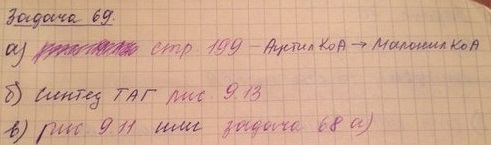 Задача 69.
а) стр. 199 - АцетилКоА → МалонилКоА
б) синтез ТАГ рис. 9.13
в) рис. 9.11 или задача 68 а)